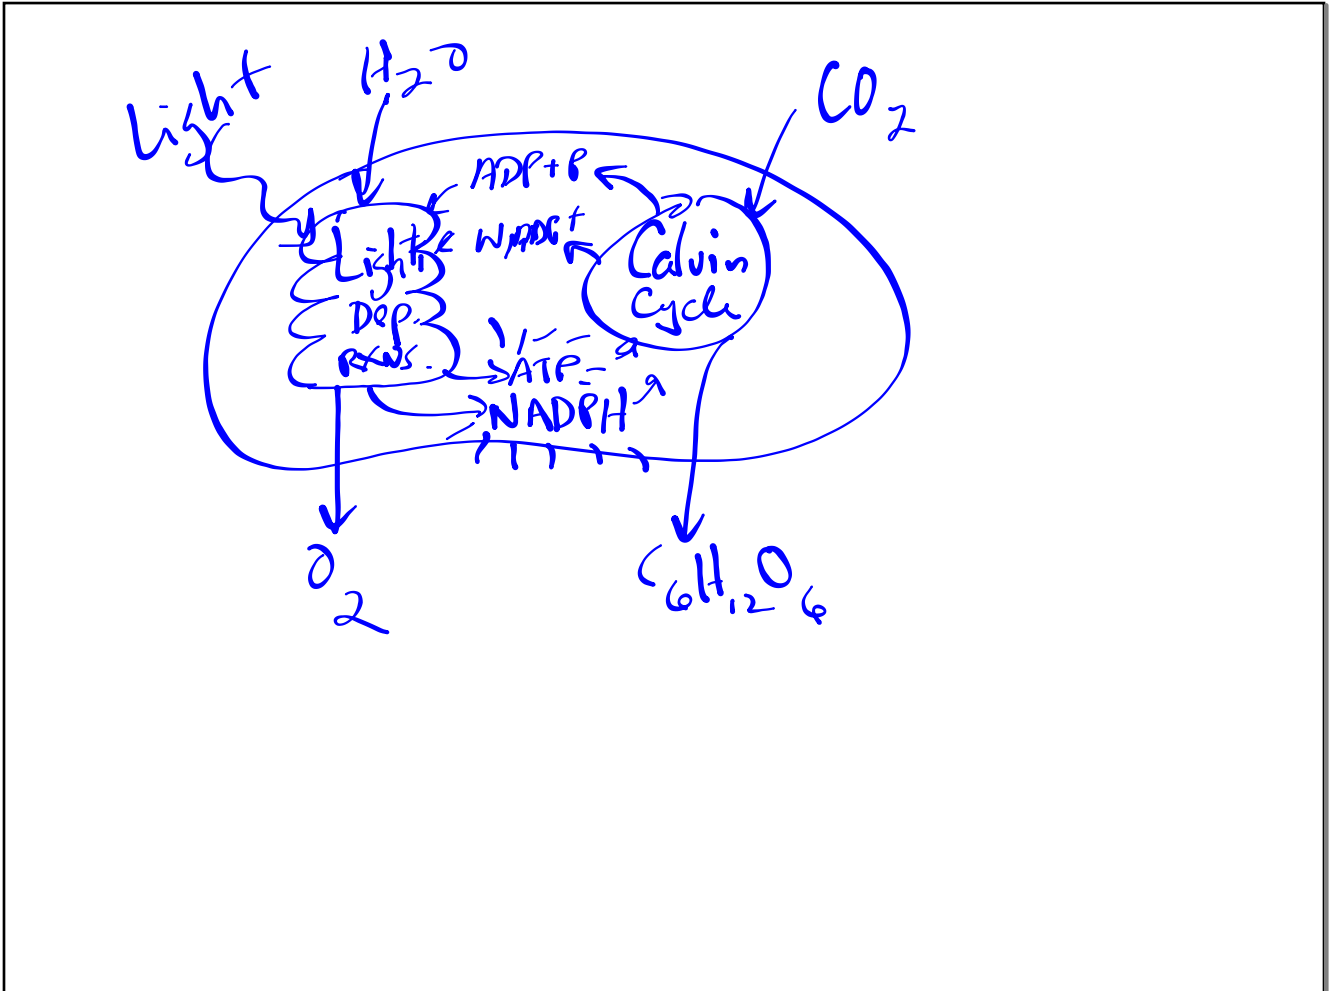 Light
H2O
CO2
ADP+P
Light
Dep.
RXNS.
Calvin
Cycle
ATP
NADPH
O2
C6H12O6